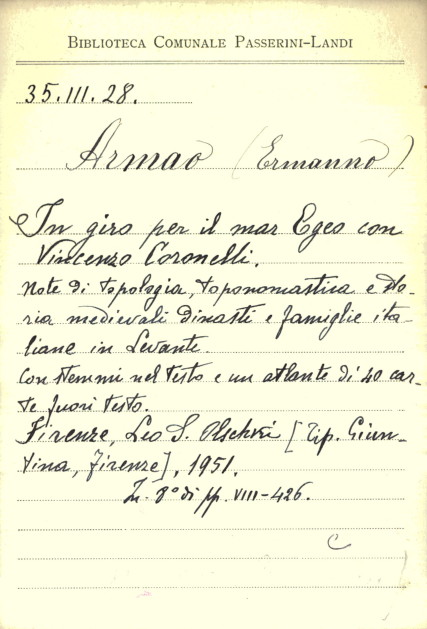 BIBLIOTECA COMUNALE PASSERINI-LANDI
35.III.28.
Armao (Ermanno)
In giro per il mar Egeo con
Vincenzo Coronelli.
Note di topologia, toponomastica e sto-
ria medievali dinasti e famiglie ita-
liane in Levante.
Con stemmi nel testo e un atlante di 40 car-
te fuori testo.
Firenze, Leo S. Olschki [Tip. Giun-
tina, Firenze], 1951.
In-8° di pp. VIII-426.
C